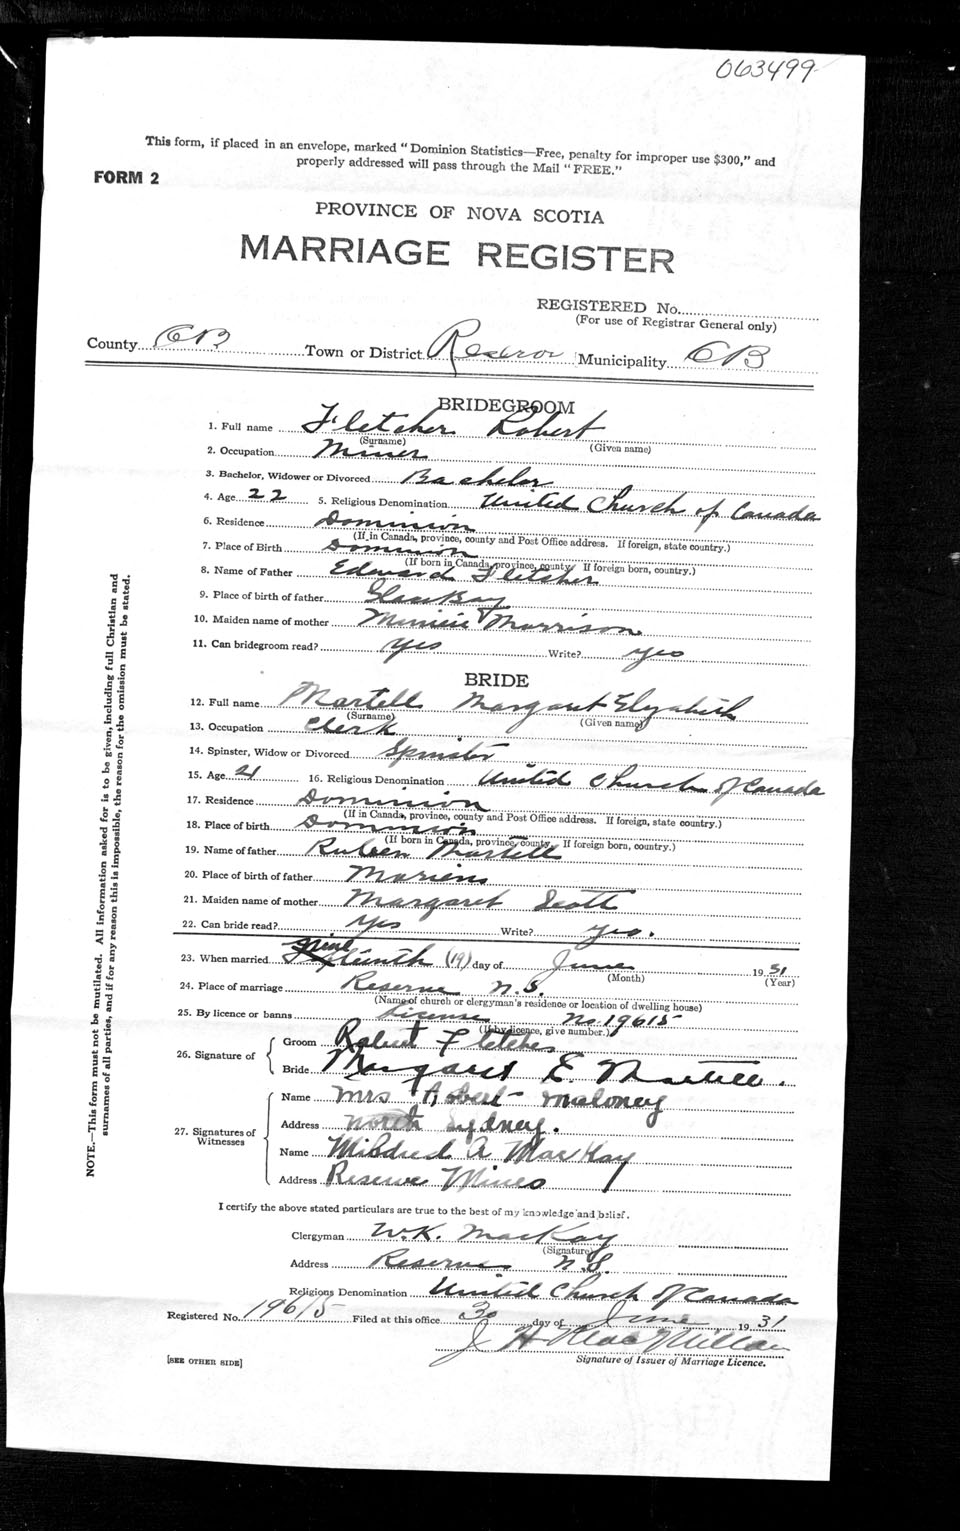 063499
This form, if placed in an envelope, marked "Dominion Statistics—Free, penalty for improper use $300," and
properly addressed will pass through the Mail "FREE."
FORM 2
PROVINCE OF NOVA SCOTIA
MARRIAGE REGISTER
REGISTERED No.
(For use of Registrar General only)
County CB Town or District Reserve Municipality CB
BRIDEGROOM
1. Full name Fletcher Robert
(Surname) (Given name)
2. Occupation Miner
3. Bachelor, Widower or Divorced Bachelor
4. Age 22 5. Religious Denomination United Church of Canada
6. Residence Dominion
(If in Canada, province, county and Post Office address. If foreign, state country.)
7. Place of Birth Dominion
(If born in Canada, province, county. If foreign born, country.)
8. Name of Father Edward Fletcher
9. Place of birth of father Glace Bay
10. Maiden name of mother Minnie Morrison
11. Can bridegroom read? yes Write? yes
BRIDE
12. Full name Martell Margaret Elizabeth
(Surname) (Given name)
13. Occupation Clerk
14. Spinster, Widow or Divorced Spinster
15. Age 21 16. Religious Denomination United Church of Canada
17. Residence Dominion
(If in Canada, province, county and Post Office address. If foreign, state country.)
18. Place of birth Dominion
(If born in Canada, province, county. If foreign born, country.)
19. Name of father Ruben Martell
20. Place of birth of father
21. Maiden name of mother Margaret Scott
22. Can bride read? yes Write? yes.
23. When married Nineteenth (19) day of June 1931
(Month) (Year)
24. Place of marriage Reserve N.S.
(Name of church or clergyman's residence or location of dwelling house)
25. By licence or banns License No. 19615
(If by licence, give number.)
26. Signature of
Groom Robert Fletcher
Bride Margaret E. Martell.
27. Signatures of Witnesses
Name Mrs Robert Maloney
Address North Sydney.
Name Mildred A MacKay
Address Reserve Mines
I certify the above stated particulars are true to the best of my knowledge and belief.
Clergyman W.K. MacKay
(Signature)
Address Reserve N.S.
Religious Denomination United Church of Canada
Registered No. 19615 Filed at this office 30 day of June 1931
J H MacMillan
[SEE OTHER SIDE] Signature of Issuer of Marriage Licence.
NOTE.—This form must not be mutilated. All information asked for is to be given, including full Christian and
surnames of all parties, and if for any reason this is impossible, the reason for the omission must be stated.